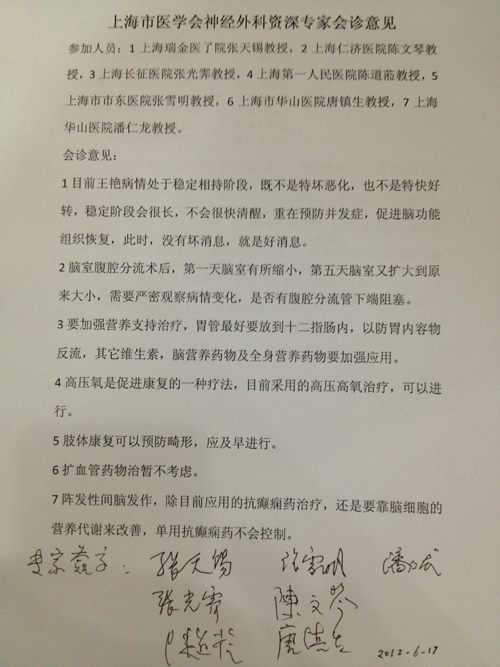 上海市医学会神经外科资深专家会诊意见
参加人员：1 上海瑞金医了院张天锡教授，2 上海仁济医院陈文琴
教授，3 上海长征医院张光霁教授，4 上海第一人民医院陈道莅教授，5
上海市市东医院张雪明教授，6 上海市华山医院唐镇生教授，7 上海
华山医院潘仁龙教授。
会诊意见：
1 目前王艳病情处于稳定相持阶段，既不是特坏恶化，也不是特快好
转，稳定阶段会很长，不会很快清醒，重在预防并发症，促进脑功能
组织恢复，此时，没有坏消息，就是好消息。
2 脑室腹腔分流术后，第一天脑室有所缩小，第五天脑室又扩大到原
来大小，需要严密观察病情变化，是否有腹腔分流管下端阻塞。
3 要加强营养支持治疗，胃管最好要放到十二指肠内，以防胃内容物
反流，其它维生素，脑营养药物及全身营养药物要加强应用。
4 高压氧是促进康复的一种疗法，目前采用的高压高氧治疗，可以进
行。
5 肢体康复可以预防畸形，应及早进行。
6 扩血管药物治暂不考虑。
7 阵发性间脑发作，除目前应用的抗癫痫药治疗，还是要靠脑细胞的
营养代谢来改善，单用抗癫痫药不会控制。
专家签字： 张天锡
张光霁 陳文琴
2012-6-17